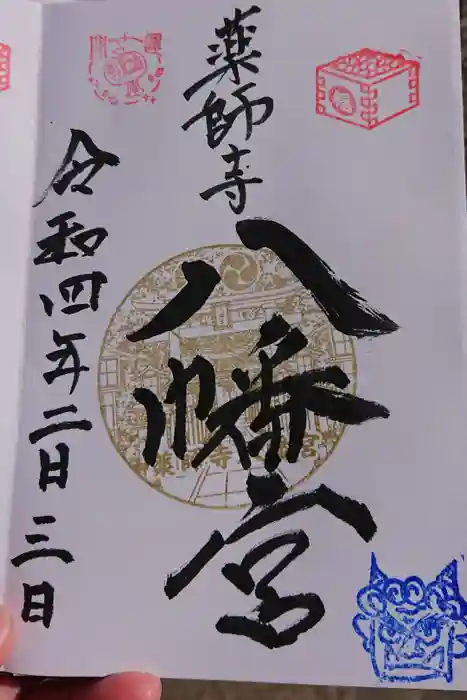 薬師寺
八幡宮
令和四年二月三日